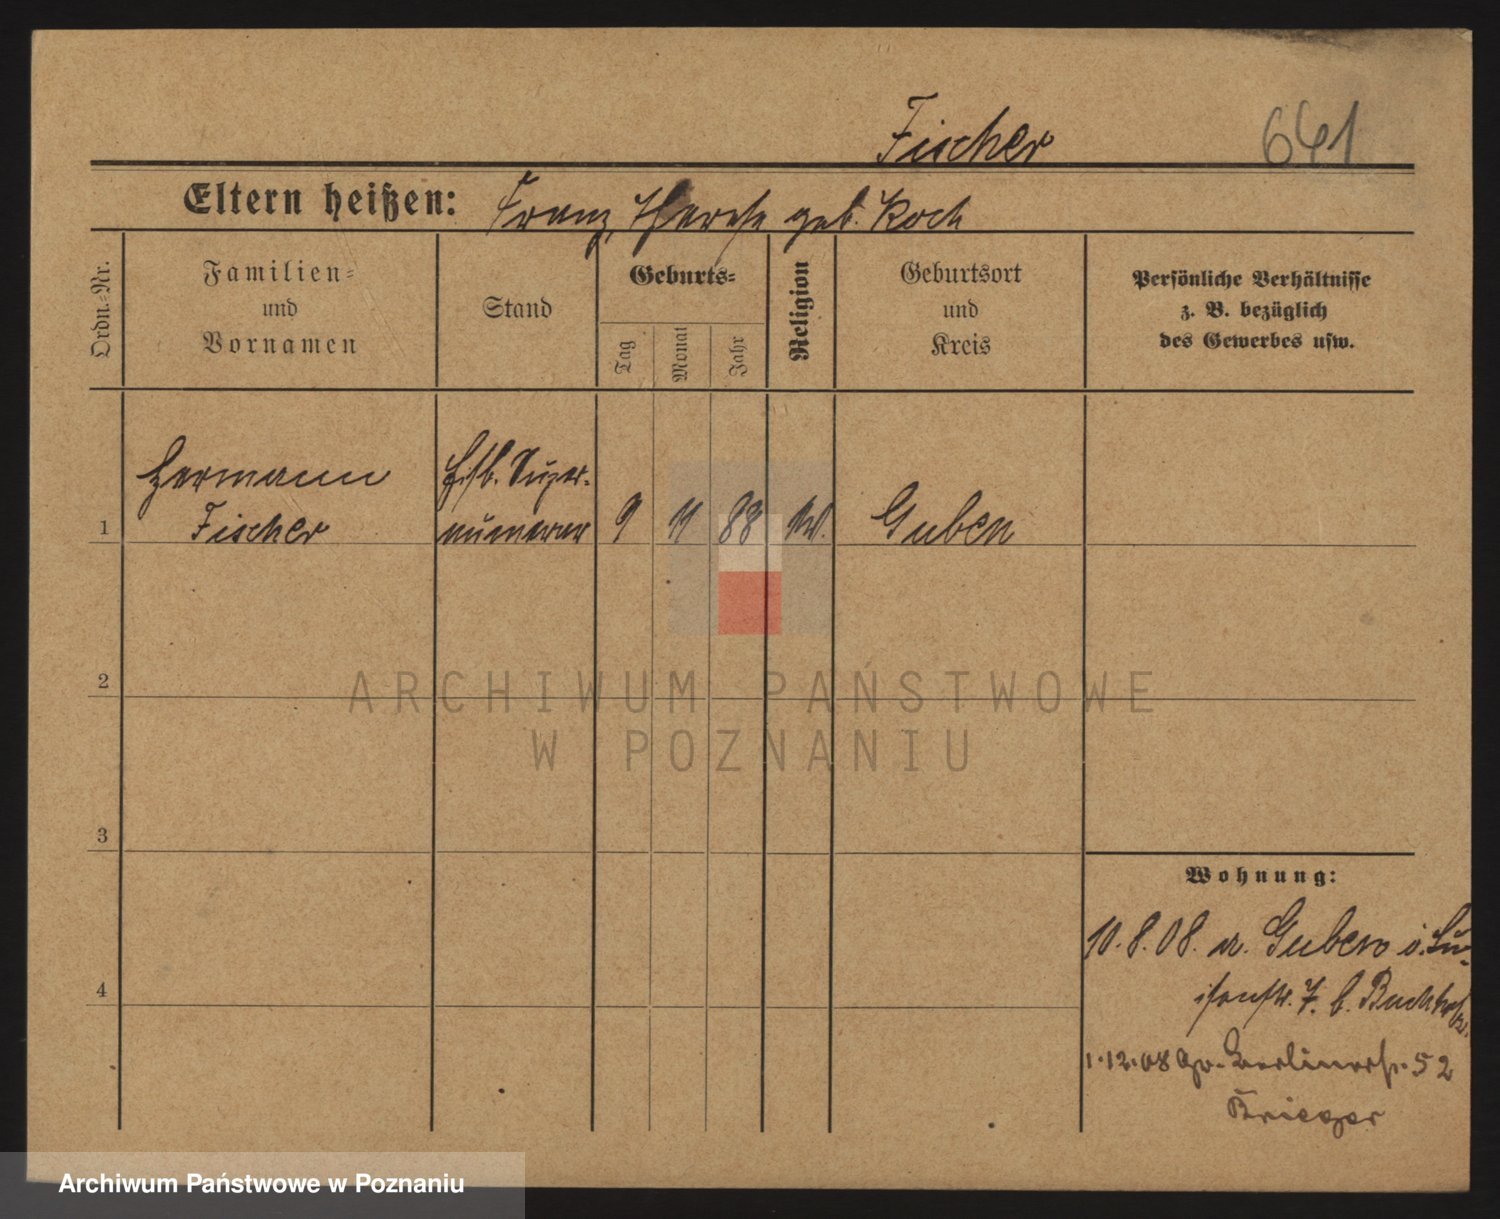 Fischer 641
Eltern heißen: Franz, Therese geb. Koch
Ordn.-Nr.
Familien-
und
Vornamen
Stand
Geburts-
Tag
Monat
Jahr
Religion
Geburtsort
und
Kreis
Persönliche Verhältnisse
z. B. bezüglich
des Gewerbes usw.
Hermann
Fischer
Super-
numerar
1
9
11
88
Guben
2
3
4
Wohnung:
10.8.08. a. Guben i. Lu-
isenstr. 7. b. Buchholz.
1.12.08 Gr. Berlinerstr. 52
Krieger
ARCHIWUM PAŃSTWOWE
W POZNANIU
Archiwum Państwowe w Poznaniu